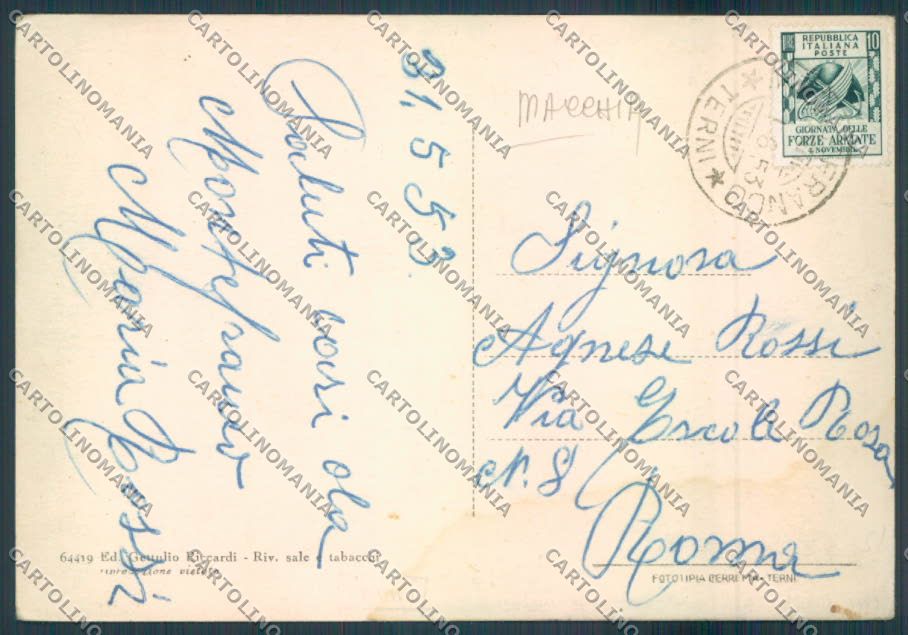 31.5.53.
Saluti cari da
Montefranco
Maria Rossi
MACCHIA
REPUBBLICA
ITALIANA
POSTE
10
LIRE
GIORNATA DELLE
FORZE ARMATE
4 NOVEMBRE
FRANCO
53
* TERNI *
Signora
Agnese Rossi
Via Ercole Rosa
N. 8
Roma
64419 Ed. Getulio Riccardi - Riv. sale e tabacchi
riproduzione vietata
FOTOTIPIA CERRETTA-TERNI
CARTOLINOMANIA